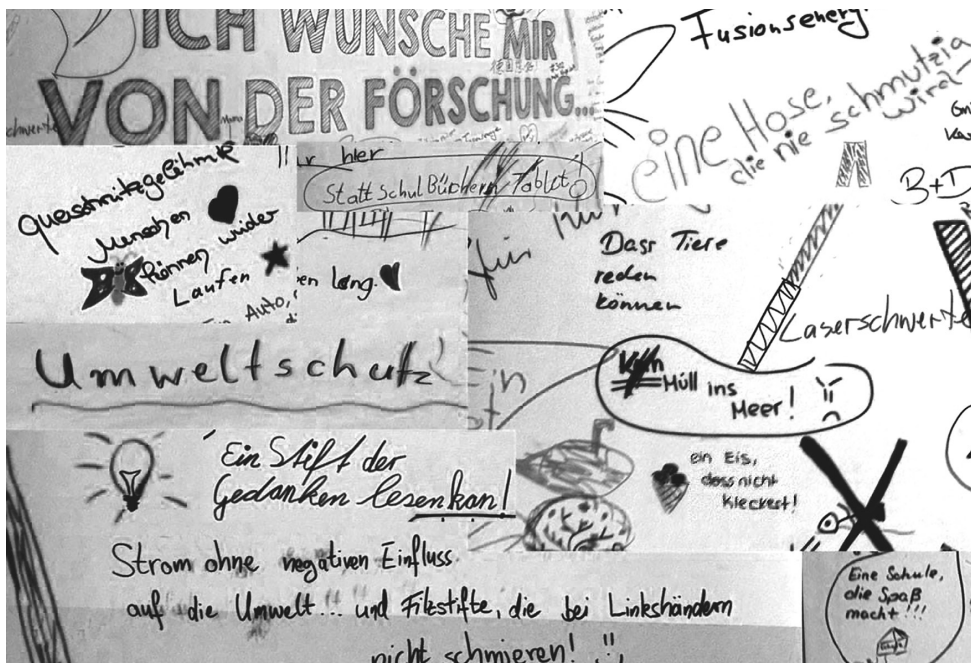 ICH WÜNSCHE MIR
VON DER FÖRSCHUNG...
Fusionsenerg
eine Hose,
die nie schmutzig
wird
B+D
hier
Statt SchulBüchern Tablet!
Querschnittsgelähmte
Menschen
können wieder
Laufen
Auto,
en lang.
für
Dass Tiere
reden
können
Laserschwerte
Umweltschutz!
Müll ins
Meer!
ein Eis,
dass nicht
kleckert!
Ein Stift der
Gedanken lesen kan!
Strom ohne negativen Einfluss
auf die Umwelt... und Filzstifte, die bei Linkshändern
nicht schmieren!
Eine Schule,
die Spaß
macht!!!